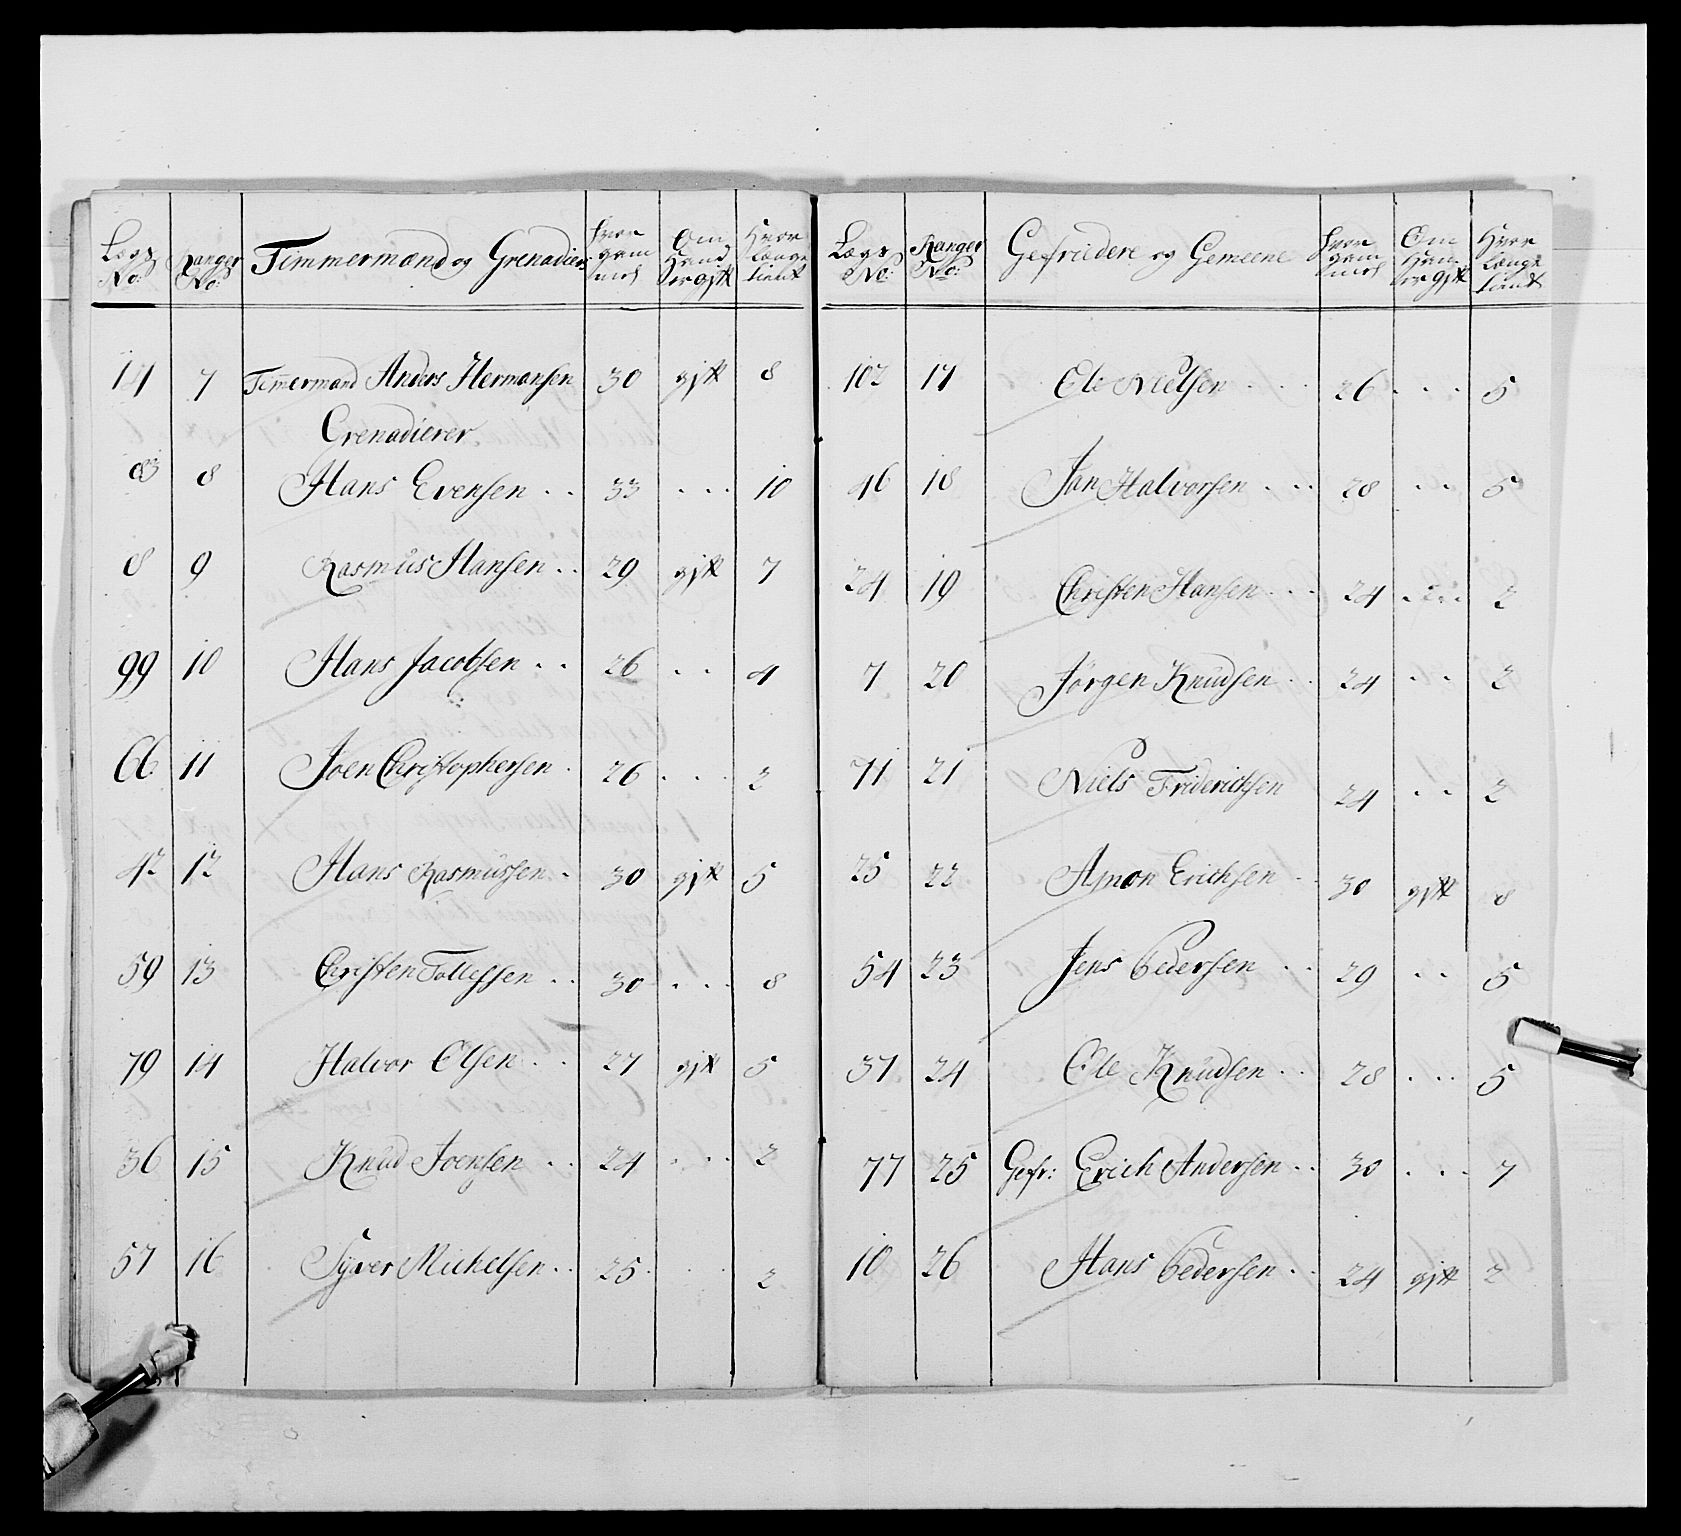 Lægs No: Ranger No: Timmermænd og Grenadiers Hvor gam mel Om Hand er gift Hvor Længe tient
14 7 Timmermand Anders Hermansen 30 gift 8
Grenadierer
83 8 Hans Evensen . . 33 . . . 10
8 9 Rasmus Hansen . . 29 gift 7
99 10 Hans Jacobsen . . 26 . . 4
66 11 Joen Christophersen . 26 . . . 2
42 12 Hans Rasmussen . 30 gift 5
59 13 Christen Tollefsen . . 30 . . . 8
79 14 Halvor Olsen . . 27 gift 5
36 15 Knud Joensen . . 24 . . . 2
57 16 Syver Michelsen . . 25 . . 2
Lægs No: Ranger No: Gefriedere og Gemeene Hvor gam mel Om Han er gift Hvor Længe tient
102 17 Ole Nielsen . . . 26 . . . 5
46 18 Jan Halvorsen . . . 28 . . 5
24 19 Christen Hansen . . . 24 . . . 2
7 20 Jørgen Knudsen . . 24 . . 2
71 21 Niels Friderichsen 24 . . 2
25 22 Amon Erichsen . . 30 gift 8
54 23 Jens Pedersen . . 29 . . 5
37 24 Ole Knudsen . . 28 . . . 5
77 25 Gefr: Erich Andersen . . 30 . . . 7
10 26 Hans Pedersen . . 24 gift 2